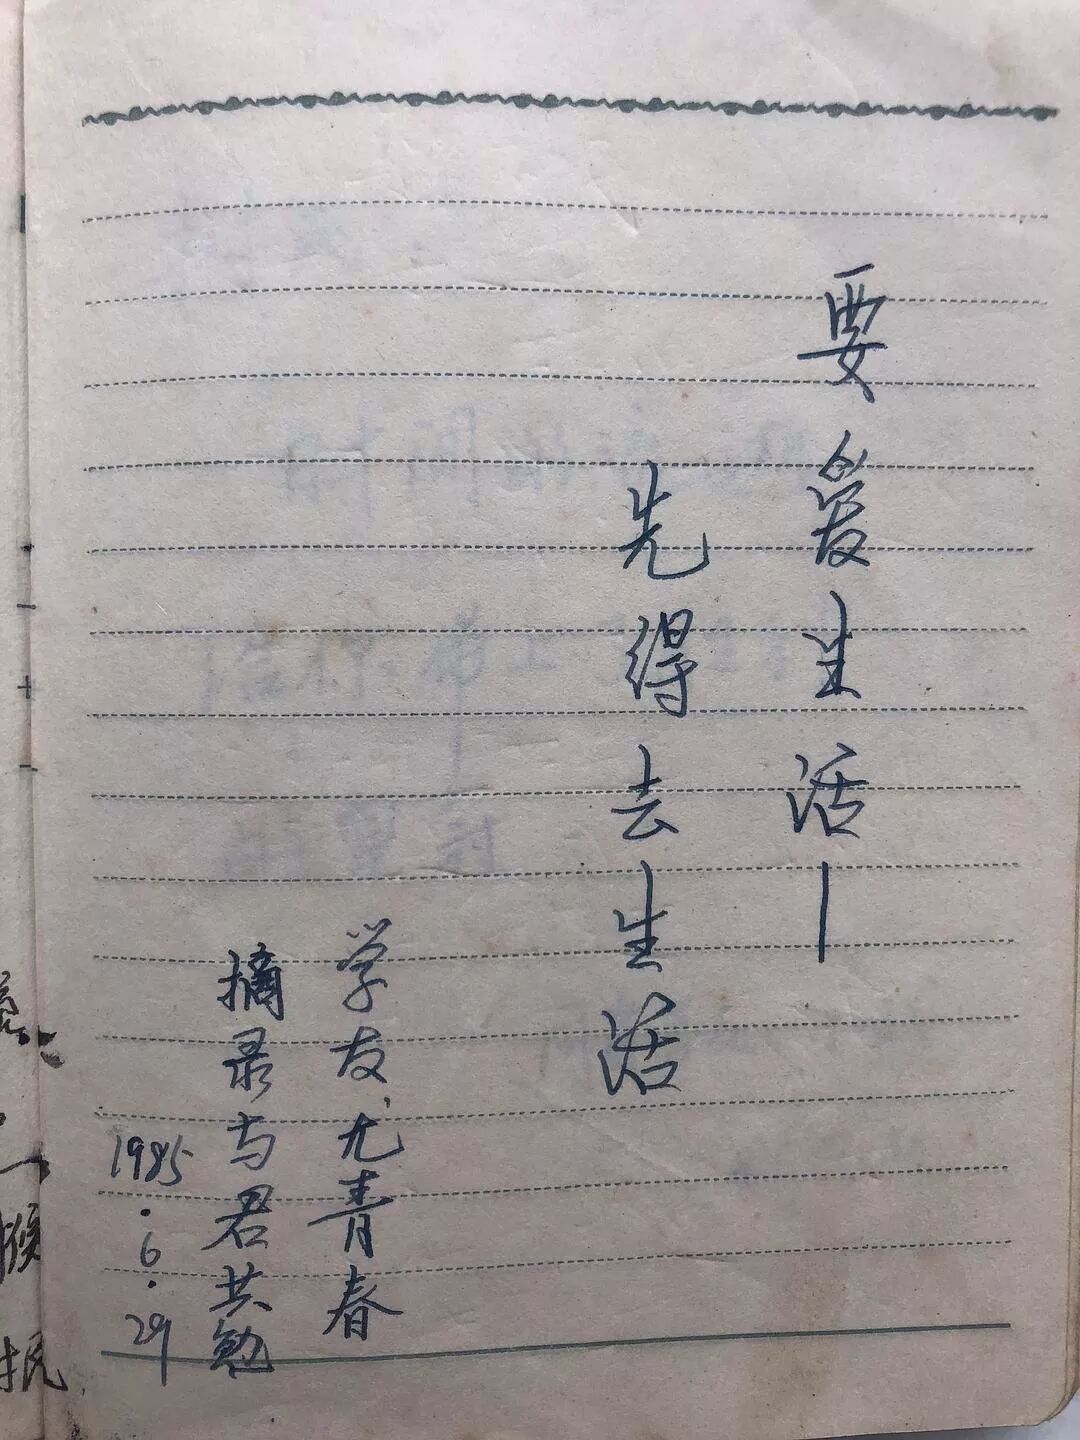 要爱生活—
先得去生活
学友尤青春
摘录与君共勉
1985.6.29